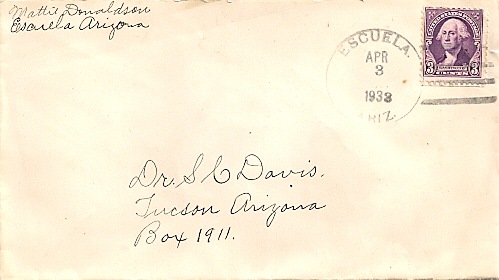 Mattie Donaldson
Escuela Arizona
ESCUELA.
APR
3
1933
ARIZ.
3 3
Dr. S C Davis.
Tucson Arizona
Box 1911.